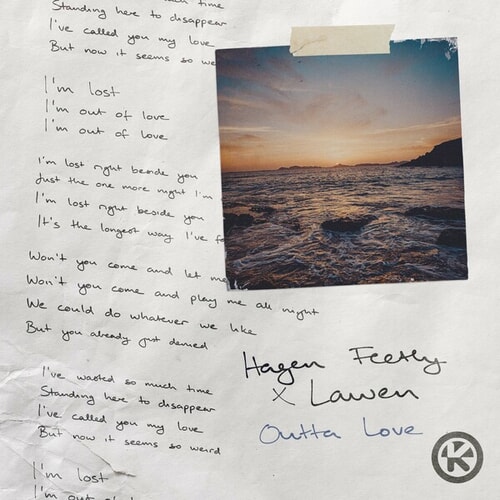 much time
Standing here to disappear
I've called you my love
But now it seems so we
I'm lost
I'm out of love
I'm out of love
I'm lost right beside you
Just the one more night I'm
I'm lost right beside you
It's the longest way I've
Won't you come and let me
Won't you come and play me all night
We could do whatever we like
But you already just denied
I've wasted so much time
Standing here to disappear
I've called you my love
But now it seems so weird
I'm lost
I'm out of
Hagen Feetly
x Lawen
Outta Love
K